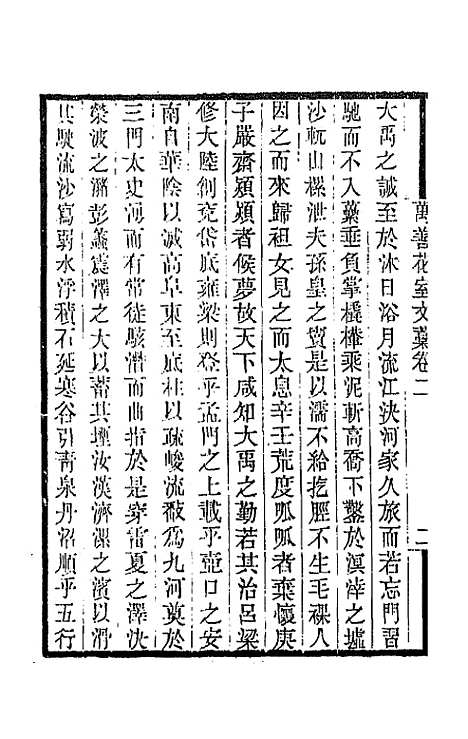 萬善花室文藁卷二
二
大禹之誠至於沐日浴月流江決河家久旅而若忘門習
馳而不入藁垂負掌橇樺乘泥斬高喬下鑿於溟涬之墟
沙蚖山樏泄夫孫皇之質是以濡不給扢脛不生毛裸人
因之而來歸祖女見之而太息辛壬荒度呱呱者棄懷庚
子嚴齋潁潁者候夢故天下咸知大禹之勤若其治呂梁
修大陸創兗岱底雍梁則登乎孟門之上載乎壺口之安
南自華陰以滅高阜東至底柱以疏峻流敽爲九河奠於
三門太史河而有常徒駭潛而曲指於是穿雷夏之澤決
滎波之瀦彭蠡震澤之大以蓄其壅汝漢濟漯之濱以滑
其駛流沙寫弱水浮積石延寒谷引靑泉丹沼順乎五行